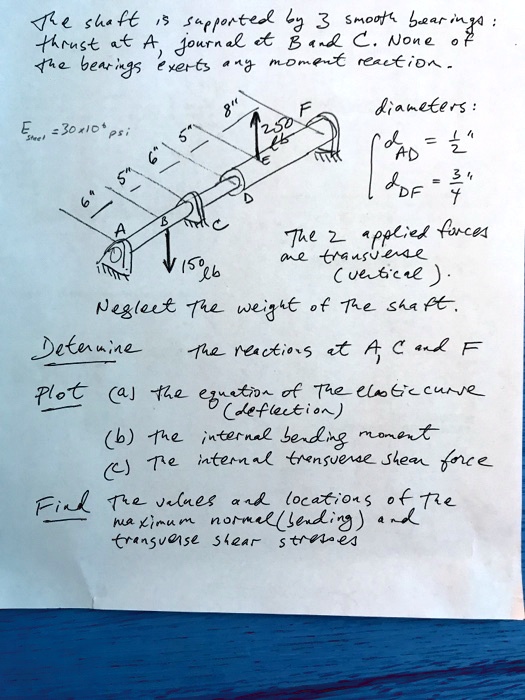 The shaft is supported by 3 smooth bearings :
thrust at A, journal at B and C. None of
the bearings exerts any moment reaction.
E_steel = 30x10⁶ psi
diameters :
d_AD = 1/2"
d_DF = 3/4"
6" 5" 6" 5" 8"
250 lb
F
E
D
C
B
A
150 lb
The 2 applied forces
are transverse
(vertical).
Neglect the weight of the shaft.
Determine the reactions at A, C and F
Plot (a) the equation of the elastic curve
(deflection)
(b) the internal bending moment
(c) The internal transverse shear force
Find The values and locations of the
maximum normal (bending) and
transverse shear stresses